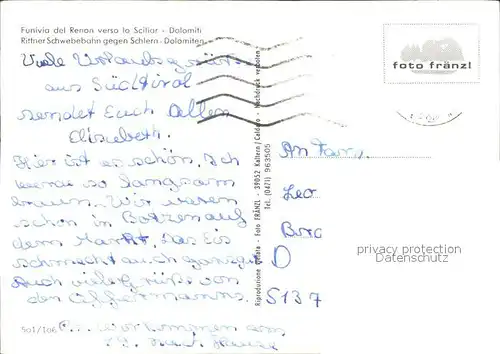 Funivia del Renon verso lo Sciliar - Dolomiti
Rittner Schwebebahn gegen Schlern - Dolomiten
Viele Urlaubsgrüße
aus Südtirol
sendet Euch Allen
Elisabeth.
Hier ist es schön. Ich
werde so langsam
braun. Wir waren
schon in Botzen auf
dem Markt. Das Eis
schmeckt auch ganz gut
Auch viele Grüße von
den
wir kommen am
19. nach Hause
501/106
Riproduzione vietata - Foto FRÄNZL - 39052 Kaltern / Caldaro - Nachdruck verboten
Tel. (0471) 963505
foto fränzl
An Fam.
Leo
Borg
D
5137
privacy protection
Datenschutz